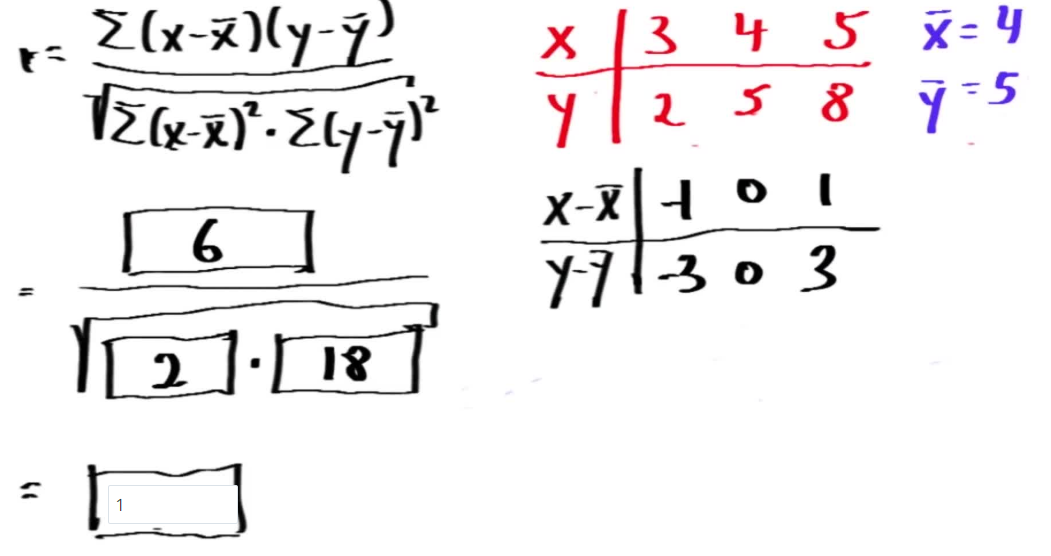 r = Σ(x-x̄)(y-ȳ) / √Σ(x-x̄)²·Σ(y-ȳ)²
= 6 / √2·18
= 1
x | 3 4 5
y | 2 5 8
x̄ = 4
ȳ = 5
x-x̄ | -1 0 1
y-ȳ | -3 0 3